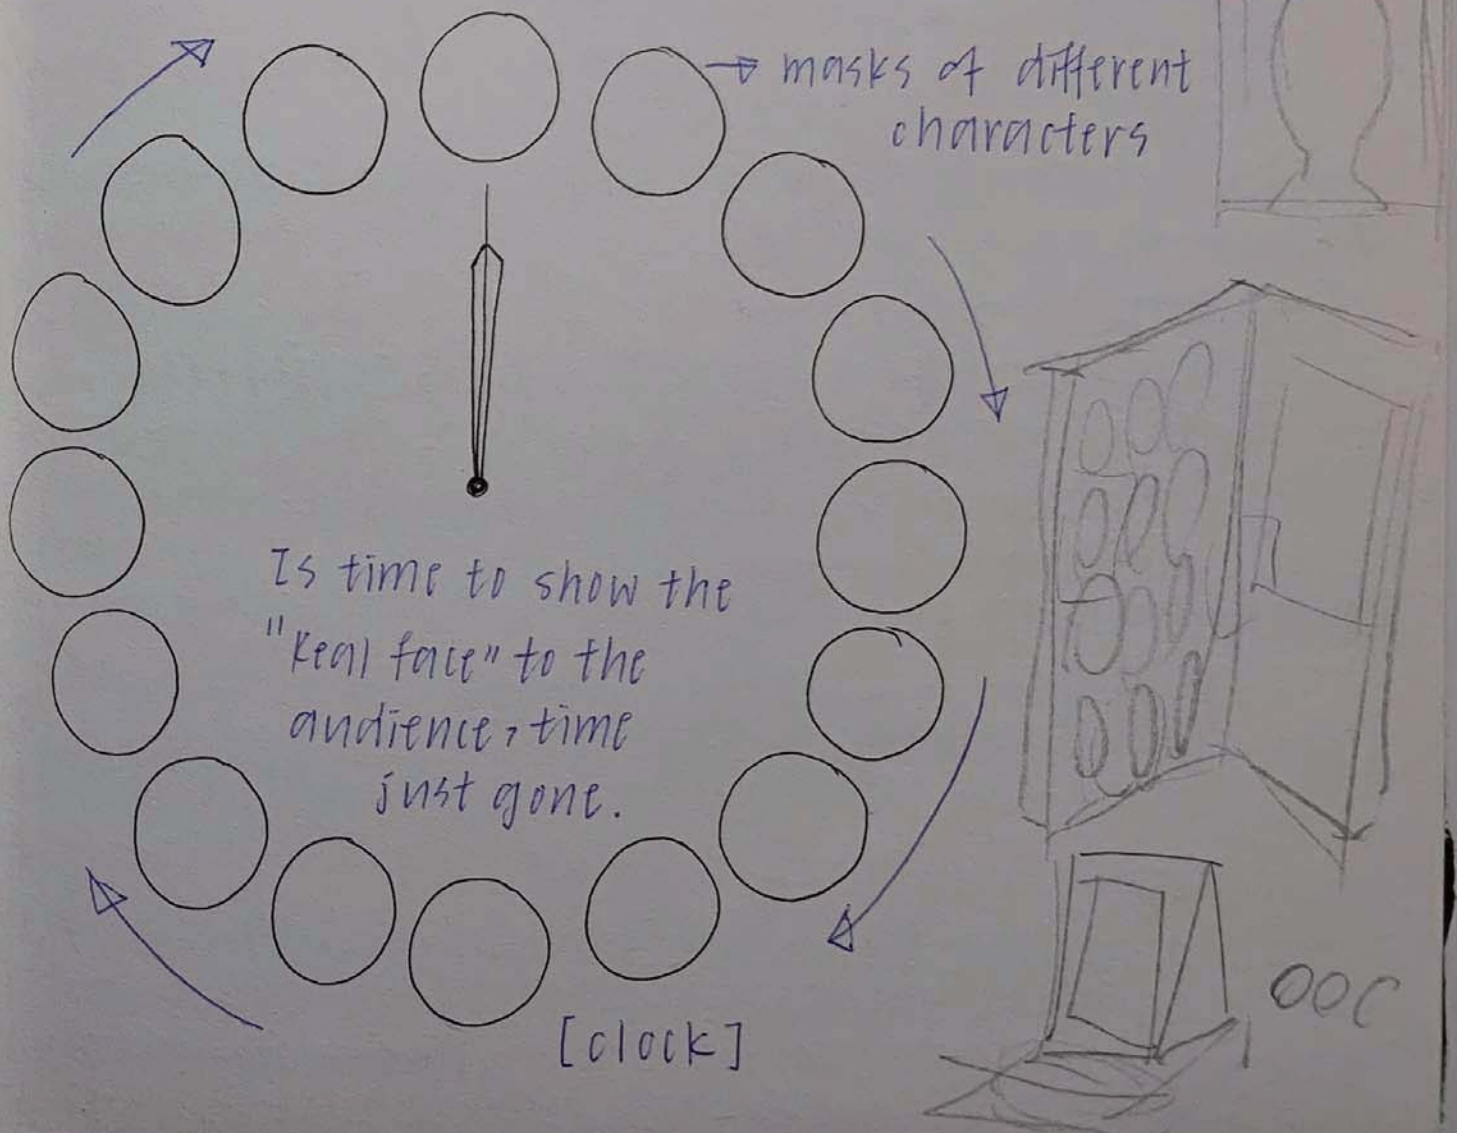 masks of different
characters
Is time to show the
"Real face" to the
audience, time
just gone.
[clock]
OOC